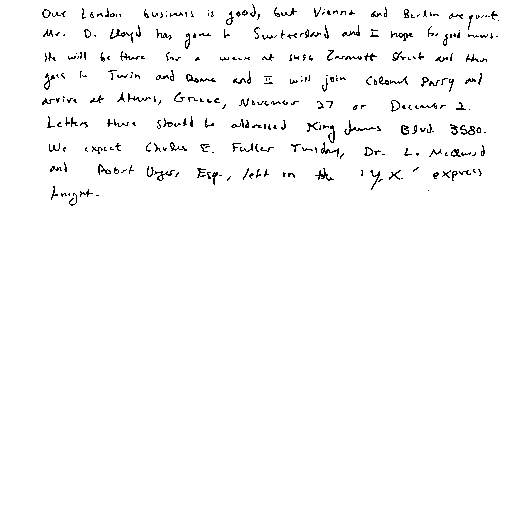 Our London business is good, but Vienna and Berlin are quiet.
Mr. D. Lloyd has gone to Switzerland and I hope for good news.
He will be there for a week at 1496 Zermott Street and then
goes to Turin and Rome and II will join Colonel Parry and
arrive at Athens, Greece, November 27 or December 2.
Letters there should be addressed King James Blvd. 3580.
We expect Charles E. Fuller Tuesday, Dr. L. McQuaid
and Robert Unger, Esq., left on the 'Y.X.' express
tonight.